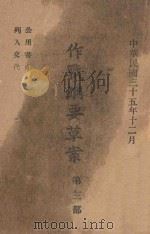 中華民國三十五年十二月
作戰綱要草案 第三部
公用書
列入交